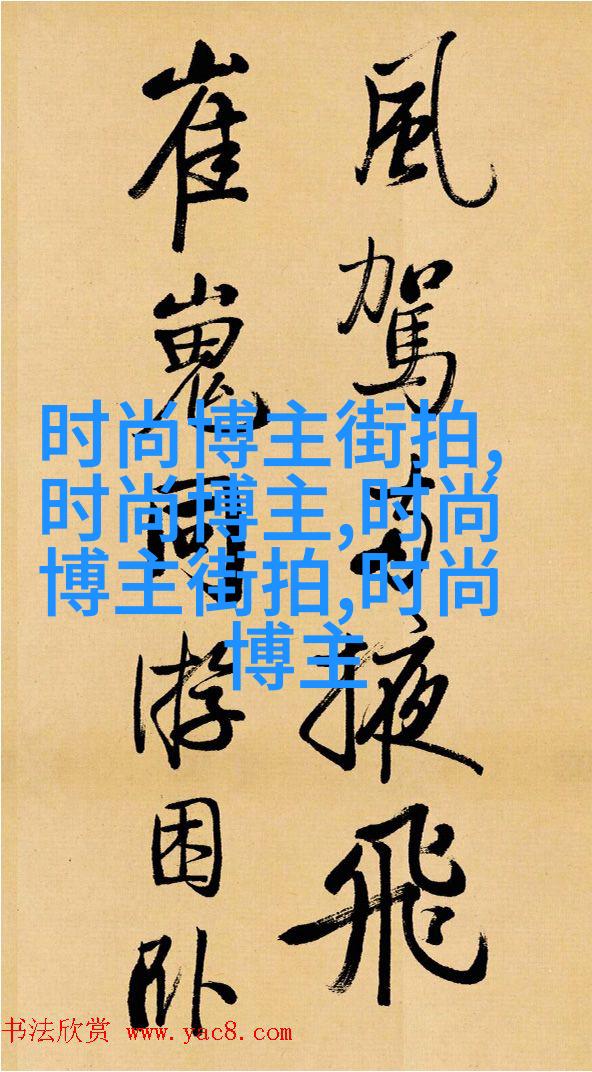 風駕掖飛
崔嵬游困卧
时尚博主街拍,
时尚博主,时尚
博主街拍,时尚
博主
书法欣赏 www.yac8.com